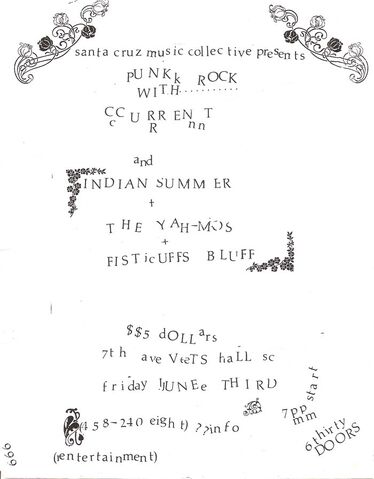 santa cruz music collective presents
PUNKk ROCK
WITH...........
CCURRENT
c R nn
and
INDIAN SUMMER
+
THE YAH-MOS
+
FISTicUFFS BLUFF
$$5 dOLLars
7th ave VeeTS haLL sc
friday !JUNEe THIRD
(458-240 eight) ??info
7pp start
mm
6thirty
DOORS
(rentertainment)
666